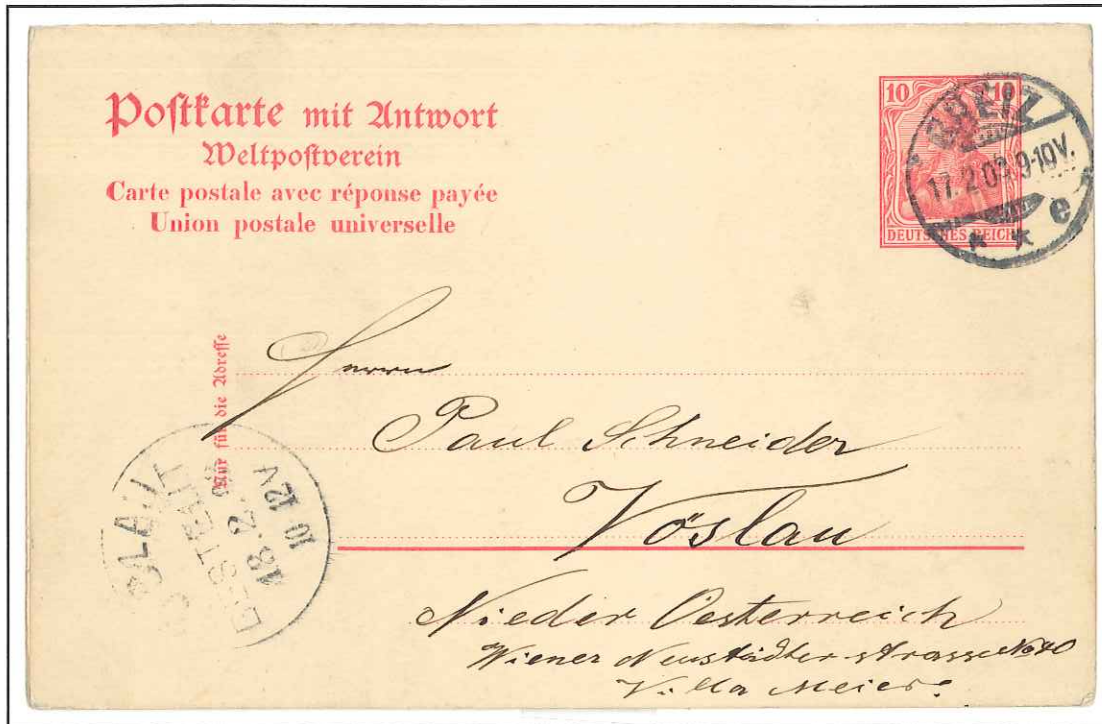 Postkarte mit Antwort
Weltpostverein
Carte postale avec réponse payée
Union postale universelle
10 10
DEUTSCHES REICH
GREIZ
17.2.03.9-10V.
* * e
Nur für die Adresse
Herrn
Paul Schneider
Vöslau
Nieder Oesterreich
Wiener Neustädter-strasse No 40
Villa Meier.
BESTELLT
18.2.03
10 12V